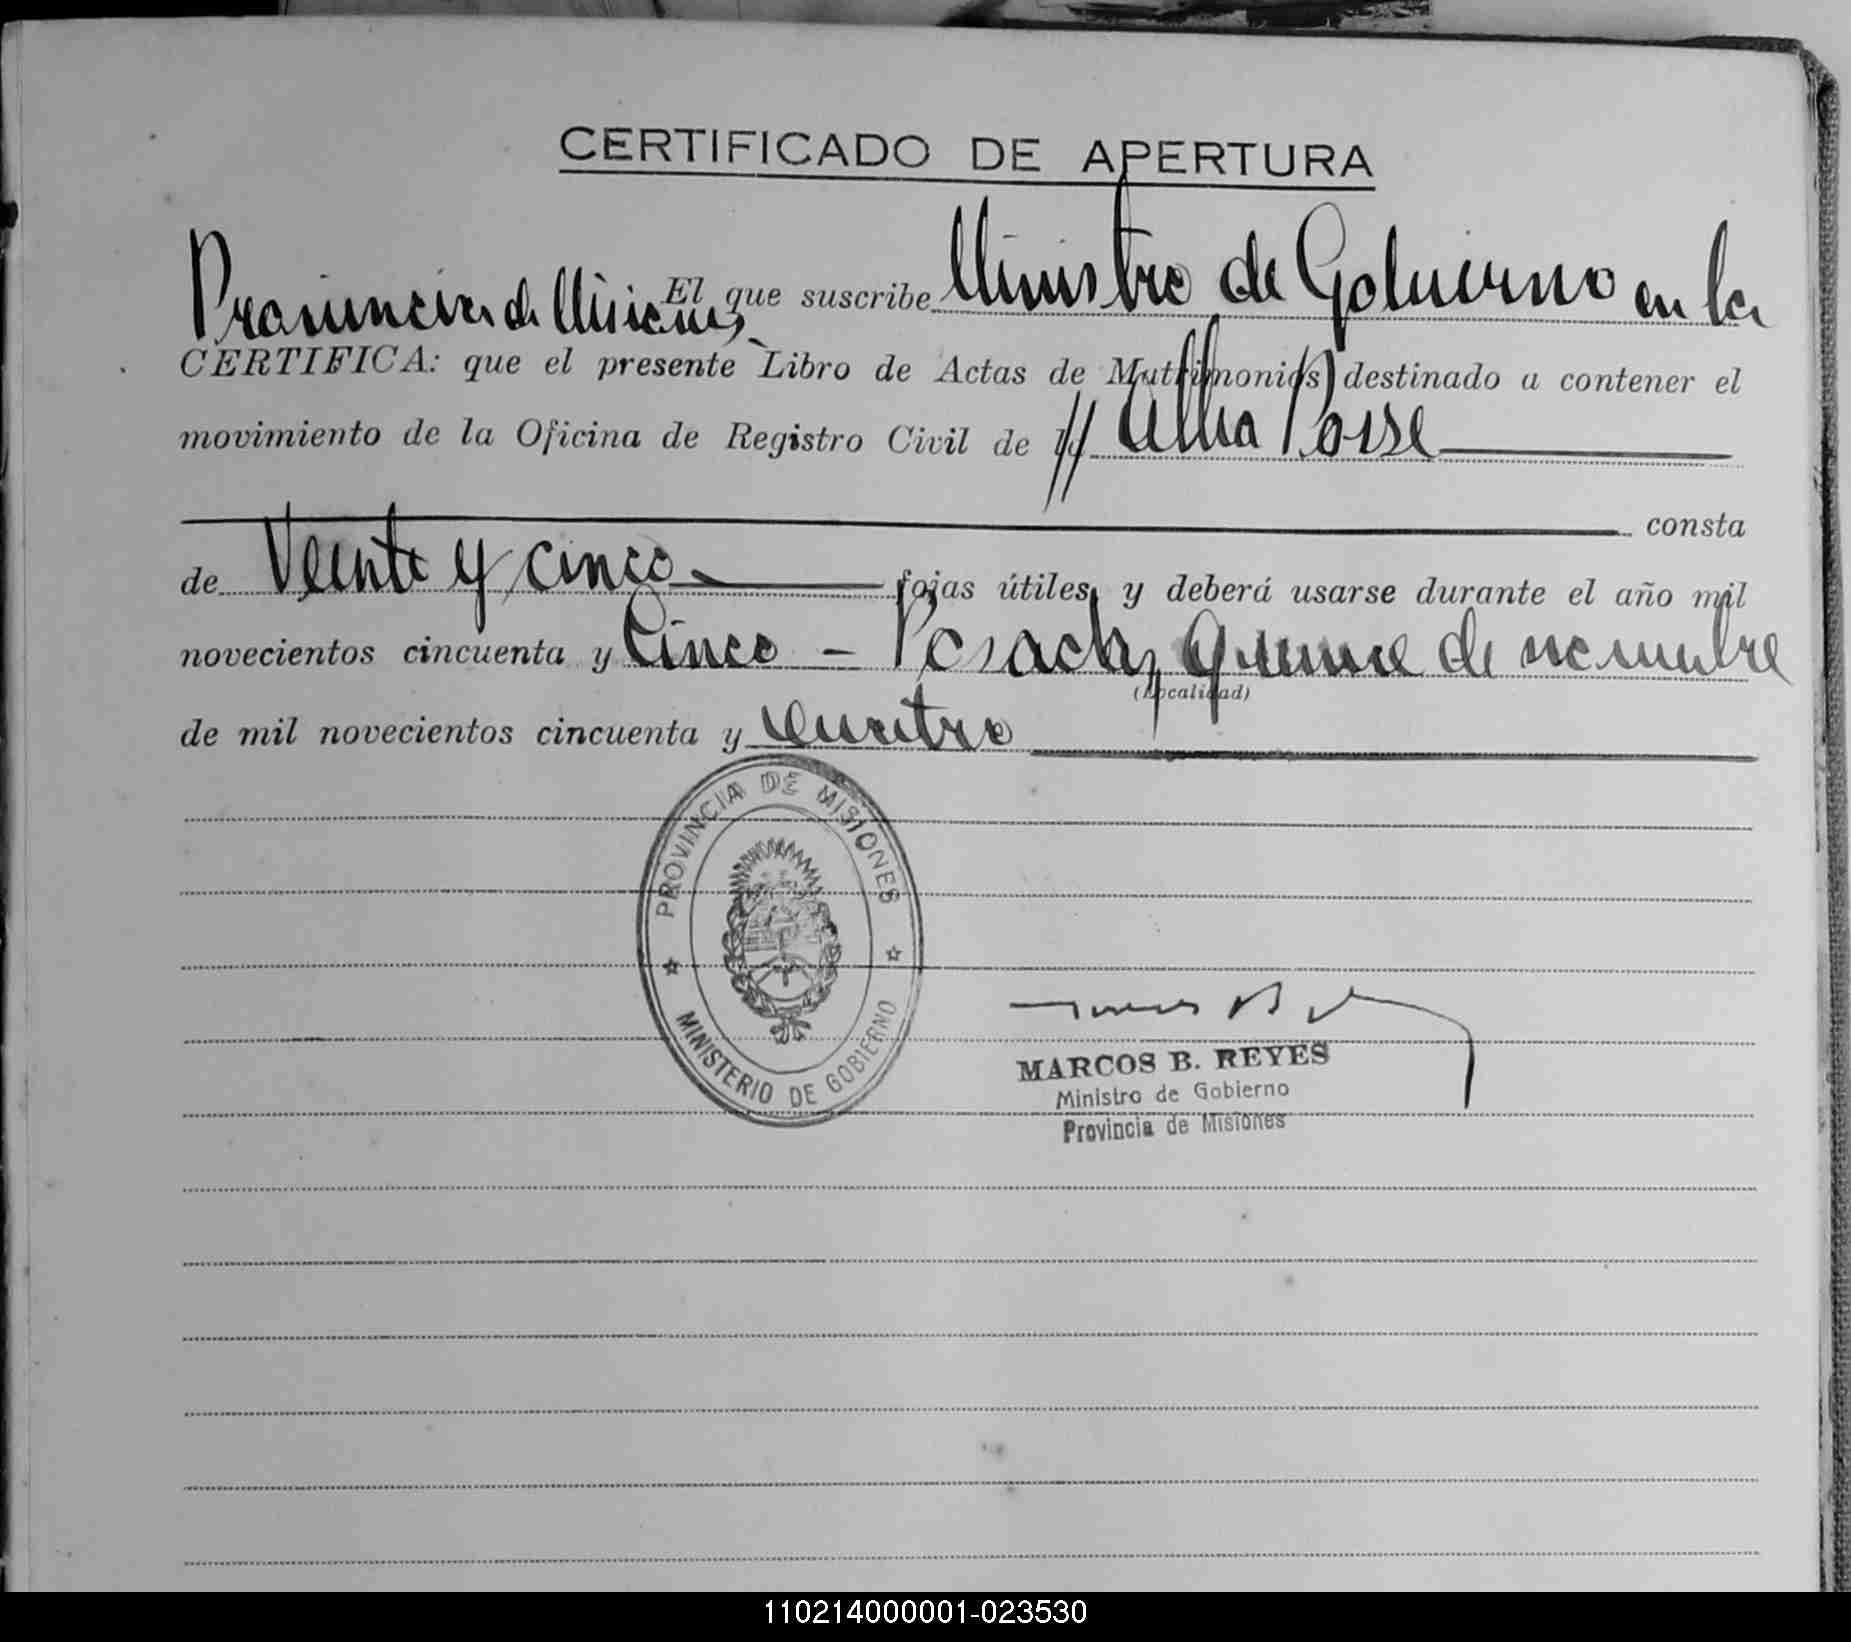 CERTIFICADO DE APERTURA
El que suscribe Ministro de Gobierno en la
Provincia de Misiones,
CERTIFICA: que el presente Libro de Actas de Matrimonios destinado a contener el
movimiento de la Oficina de Registro Civil de // Alba Posse
consta
de Veinte y cinco fojas útiles, y deberá usarse durante el año mil
novecientos cincuenta y Cinco - Posadas, quince de noviembre
(Localidad)
de mil novecientos cincuenta y cuatro
PROVINCIA DE MISIONES
MINISTERIO DE GOBIERNO
MARCOS B. REYES
Ministro de Gobierno
Provincia de Misiones
110214000001-023530